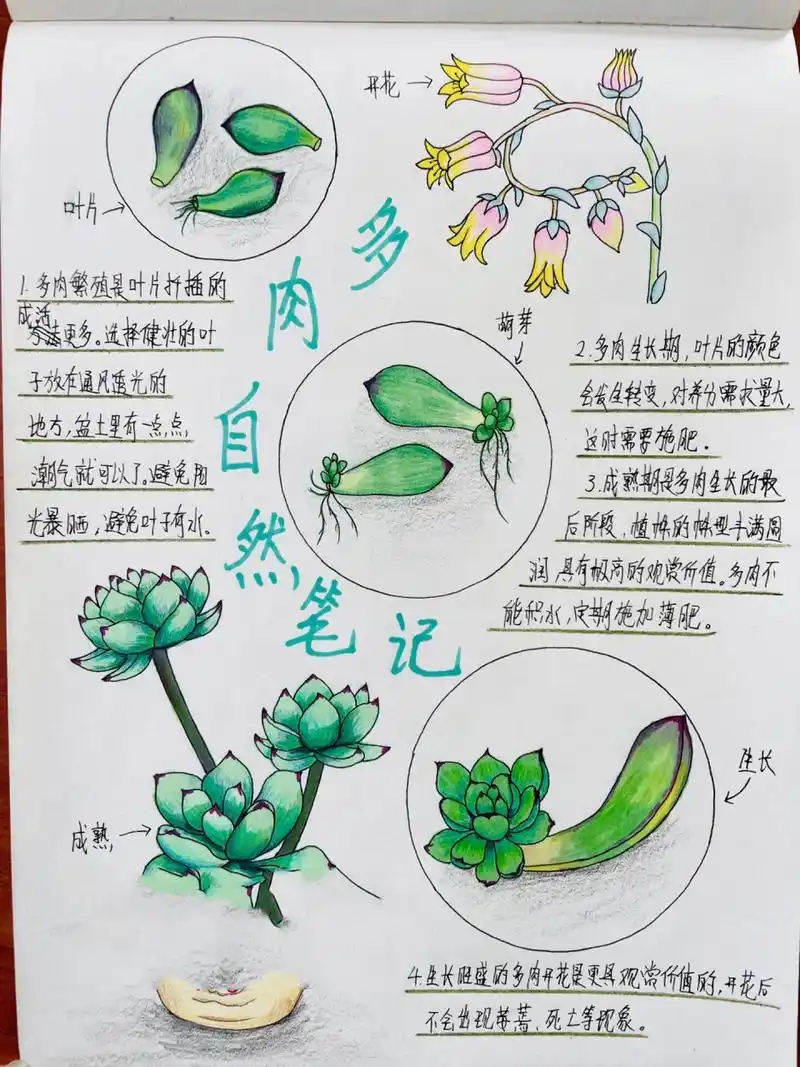 多肉自然笔记
叶片
开花
1.多肉繁殖是叶片扦插的
成活
更多。选择健壮的叶
子放在通风透光的
地方,盆土里有一点点
潮气就可以了。避免阳
光暴晒,避免叶子有水。
萌芽
2.多肉生长期,叶片的颜色
会发生转变,对养分需求量大,
这时需要施肥。
3.成熟期是多肉生长的最
后阶段,植株的株型丰满圆
润,具有极高的观赏价值。多肉不
能积水,定期施加薄肥。
生长
成熟
4.生长旺盛的多肉开花是更具观赏价值的,开花后
不会出现 、死亡等现象。